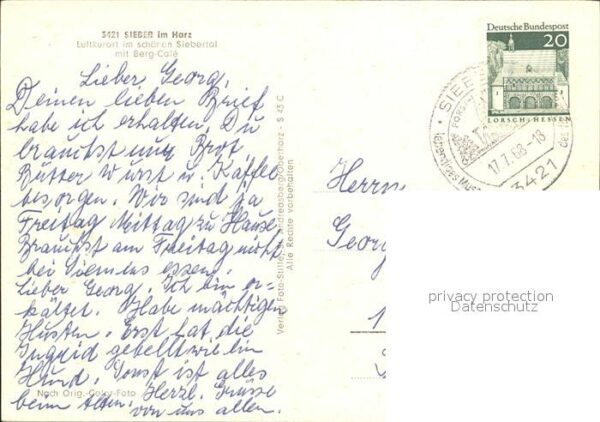 3421 SIEBER im Harz
Luftkurort im schönen Siebertal
mit Berg-Café
Lieber Georg,
Deinen lieben Brief
habe ich erhalten. Du
brauchst nur Brot,
Butter Wurst u. Kaffee
besorgen. Wir sind ja
Freitag Mittag zu Hause,
Brauchst am Freitag nicht
bei Siemens essen.
Lieber Georg. Ich bin er-
kältet. Habe mächtigen
Husten. Erst hat die
Ingrid gebellt wie ein
Hund. Sonst ist alles
beim Alten. Herzl. Grüsse
von uns allen.
Nach Orig.-Color-Foto
Verlag Foto-Stille, St. Andreasberg/Oberharz - S 45 C
Alle Rechte vorbehalten
Deutsche Bundespost
20
LORSCH · HESSEN
17.7.68-18
3421
Herrn
Georg
privacy protection
Datenschutz